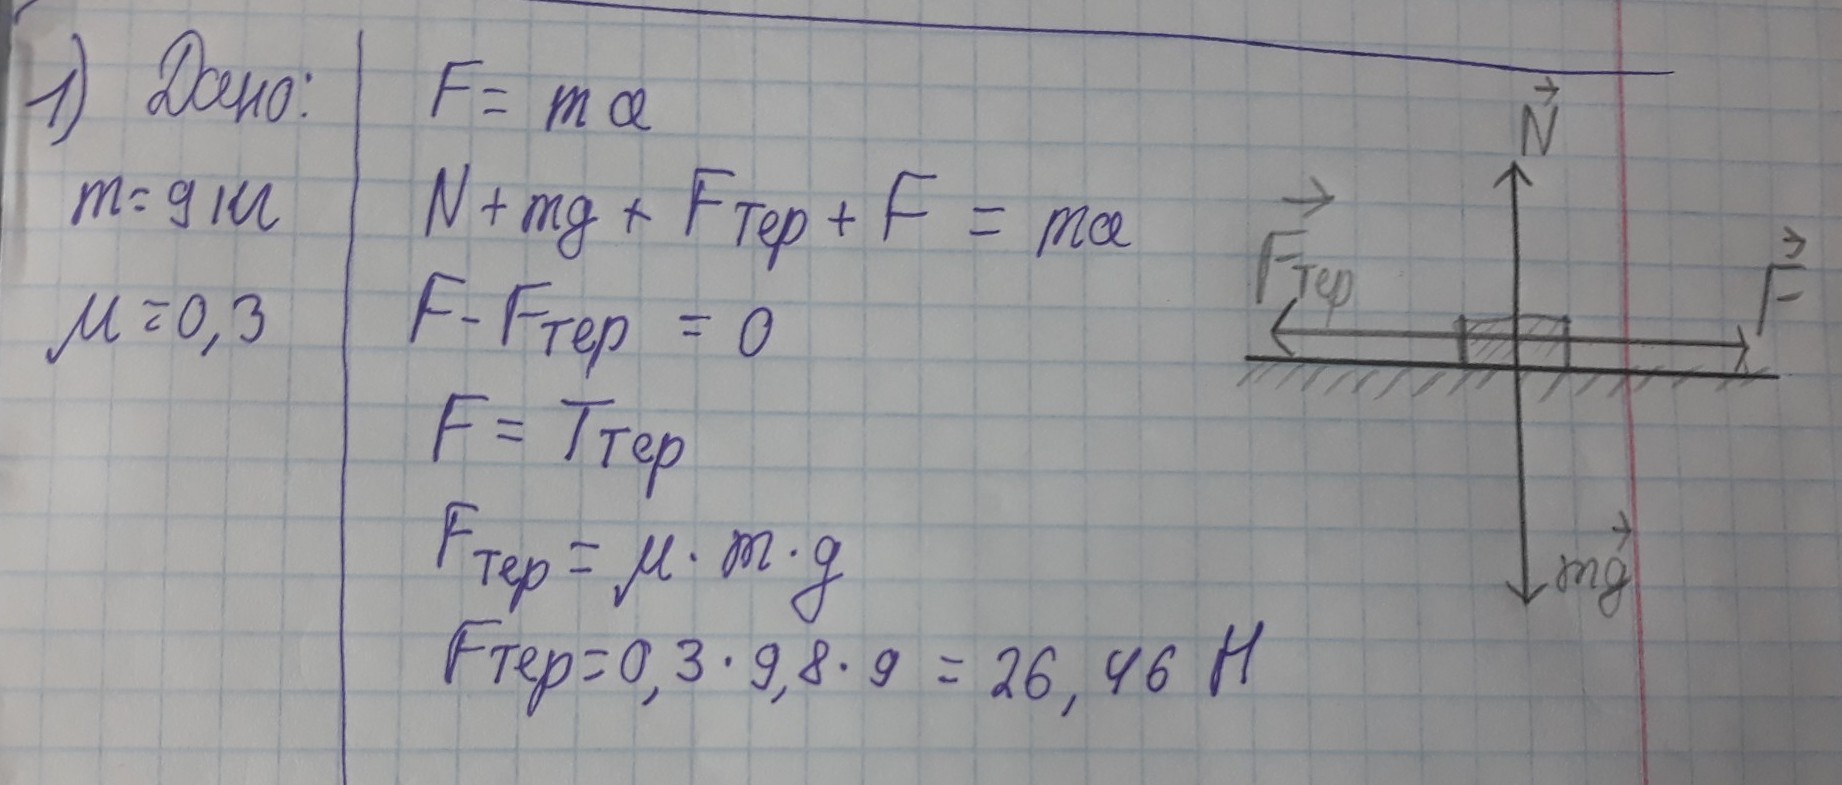 1) Дано:
m = 9 кг
μ = 0,3
F = ma
N + mg + Fтер + F = ma
F - Fтер = 0
F = Tтер
Fтер = μ · m · g
Fтер = 0,3 · 9,8 · 9 = 26,46 H
N
Fтер
F
mg